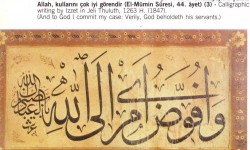 Allah, kullarını çok iyi görendir (El-Mü'min Sûresi, 44. âyet) (3) - Calligraphic
writing by Izzet in Jeli Thuluth, 1263 H. (1847)
(And to God I commit my case: Verily, God beholdeth his servants.)
وأفوض أمري إلى الله
إن الله بصير بالعباد